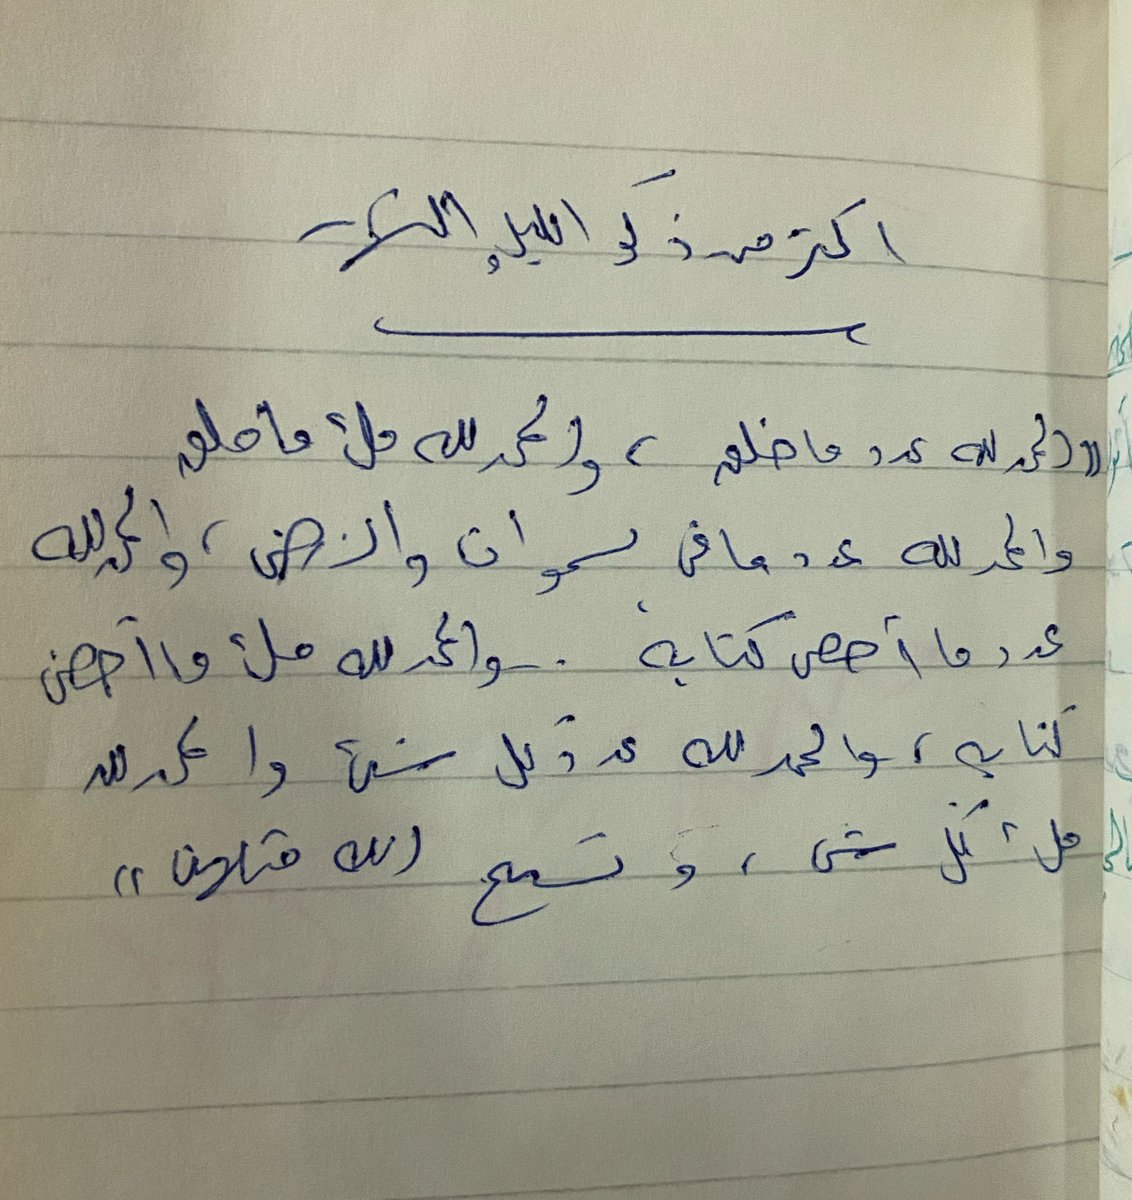 اكثر من ذكر الليل والنهار
((الحمد لله عدد ما خلق ، والحمد لله ملئ ما خلق
والحمد لله عدد ما في سموات والارض ، والحمد لله
عدد ما أحصى كتابه . والحمد لله ملئ ما أحصى
كتابه ، والحمد لله عدد كل شئ والحمد لله
ملء كل شي ، و تسبح الله مثلهن ))